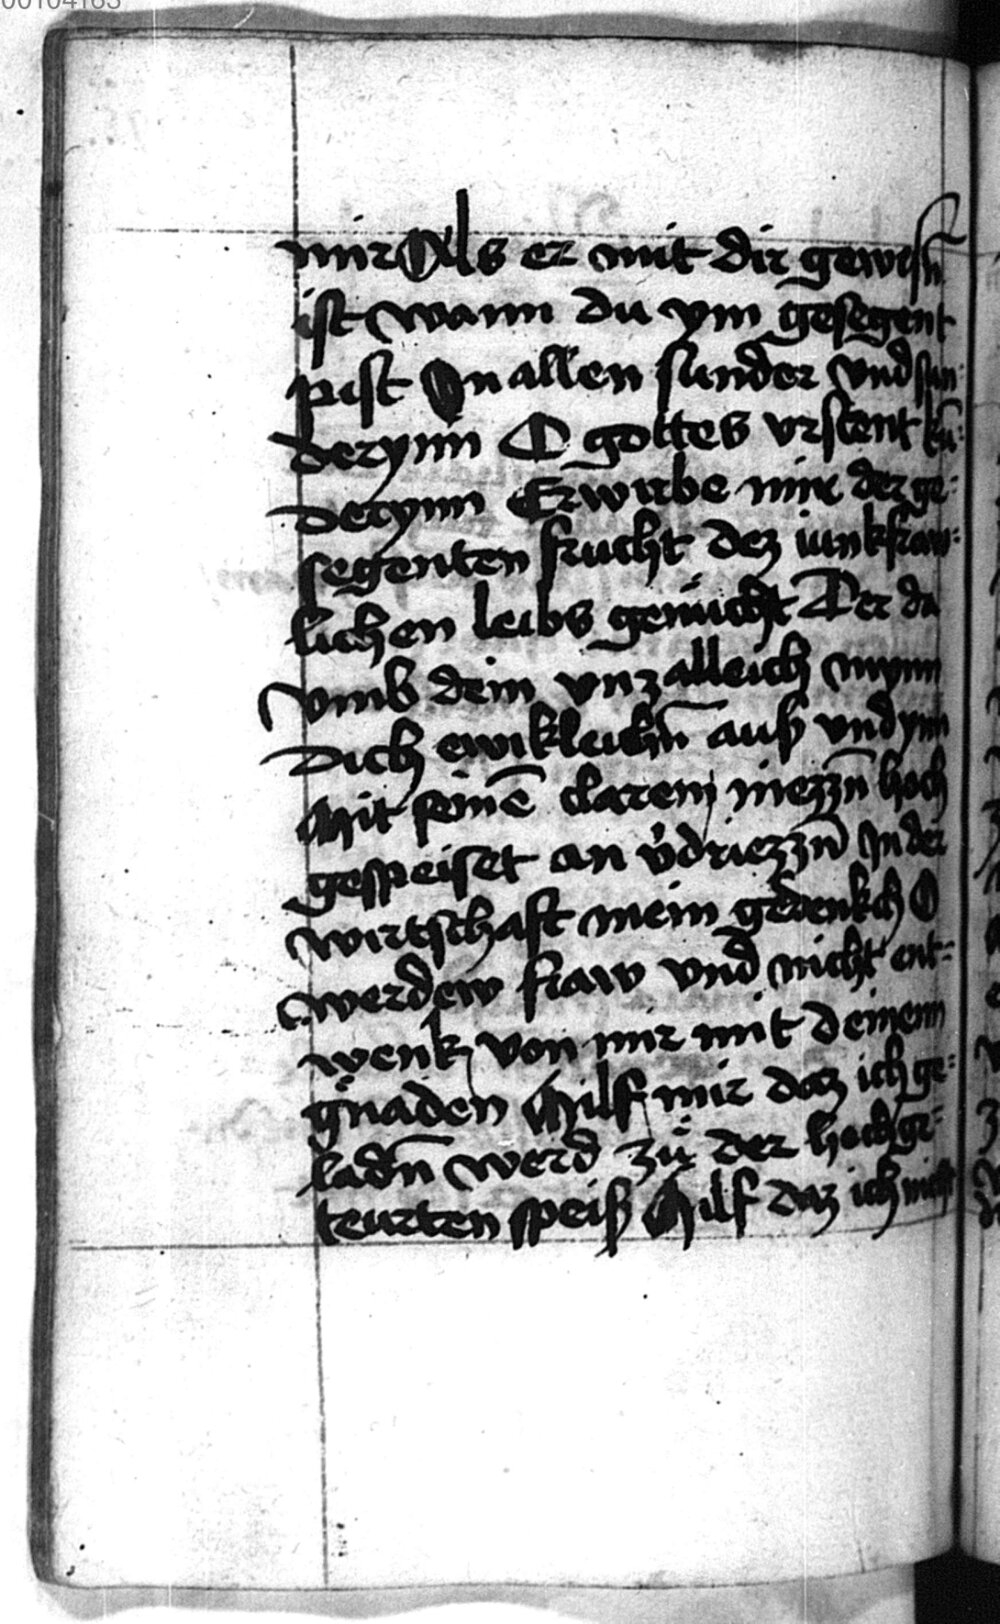 00104163
mir Als er mit dir gewesn̄
ist wann du ym gesegent
pist In allen sunder vnd sun-
derynn O gottes vrstent ku̅-
derynn Erwirbe mir der ge-
segenten frucht dez iunkfraw-
lichen leibs genücht Der da
vmb dein vnzalleich mynn
Dich ewikleichn̄ auß vnd ynn
Mit seinē clarem niezzn̄ hoch
gespeiset an v̓driezzn̄ In der
wirtschaft mein gedenkch O
werdew fraw vnd nicht ent-
wenk von mir mit deinenn
gnaden Hilf mir daz ich ge-
ladn̄ werd zů der hoch ge-
teurten speiß Hilf daz ich nicht